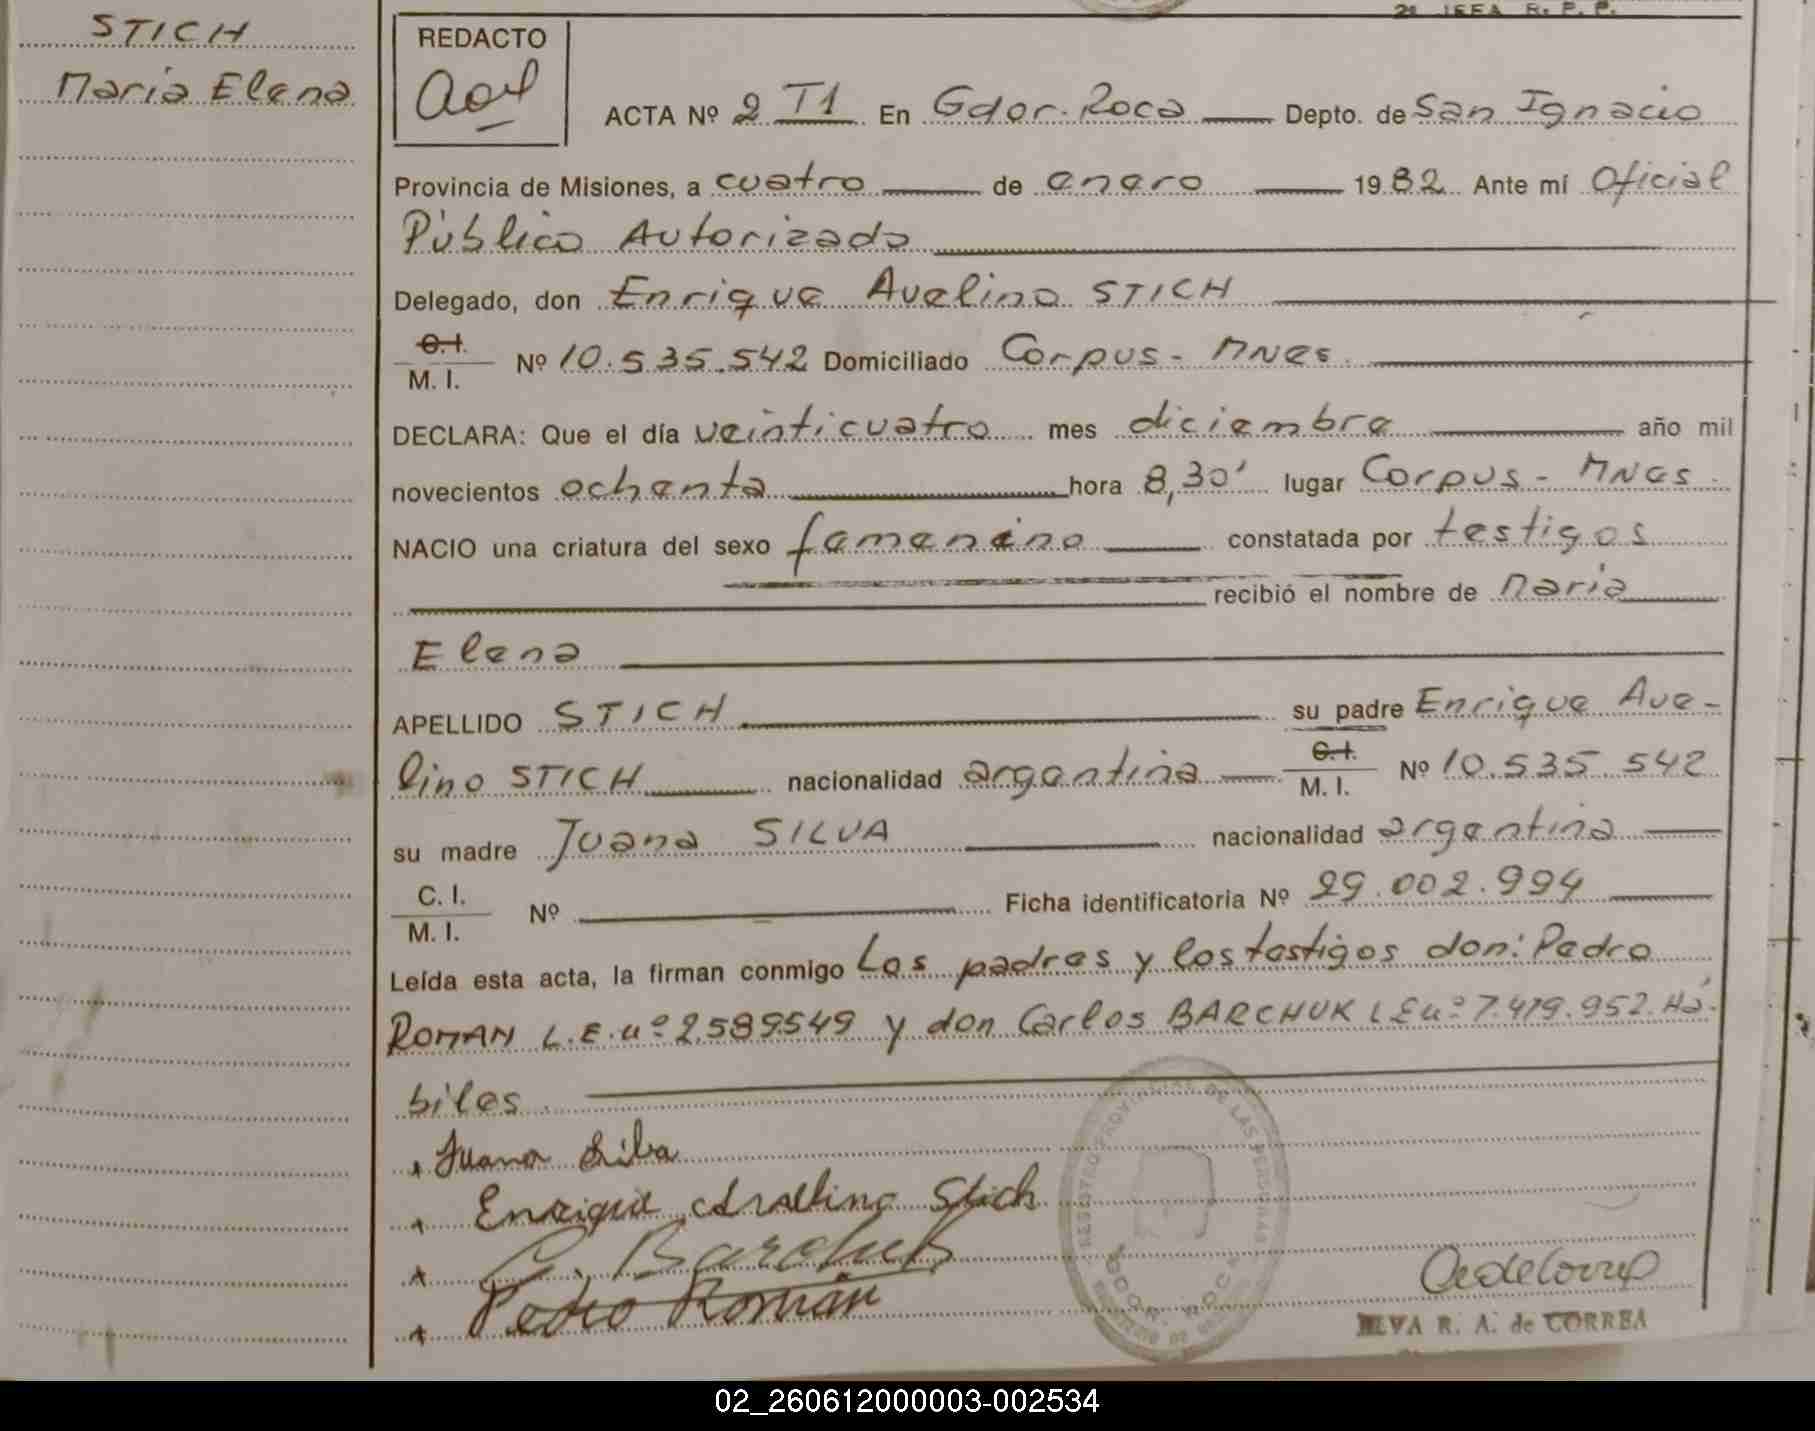 STICH
Maria Elena
2º JEFA R. P. P.
REDACTO
ACTA Nº 2 T1 En Gdor. Roca Depto. de San Ignacio
Provincia de Misiones, a cuatro de enero 1982 Ante mí Oficial
Público Autorizado
Delegado, don Enrique Avelino STICH
C.I.
M. I. Nº 10.535.542 Domiciliado Corpus - MNES.
DECLARA: Que el día veinticuatro mes diciembre año mil
novecientos ochenta hora 8,30' lugar Corpus - MNES.
NACIO una criatura del sexo femenino constatada por testigos
recibió el nombre de Maria
Elena
APELLIDO STICH su padre Enrique Ave-
lino STICH nacionalidad argentina C.I. M. I. Nº 10.535.542
su madre Juana SILVA nacionalidad argentina
C. I.
M. I. Nº Ficha identificatoria Nº 29.002.994
Leída esta acta, la firman conmigo Los padres y los testigos don: Pedro
ROMAN L.E.nº 2.589549 y don Carlos BARCHUK LE nº 7.419.952. Há-
biles.
Juana Silba
Enrique Avelino Stich
C. Barchuk
Pedro Román
REGISTRO PROVINCIAL DE LAS PERSONAS
GDOR. ROCA
ELVA R. A. de CORREA
02_260612000003-002534